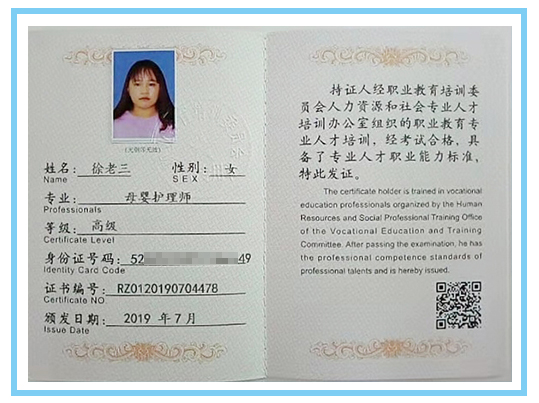 (无钢印无效)
姓名: 徐老三 性别: 女
Name SEX
专业: 母婴护理师
Professionals
等级: 高级
Certificate Level
身份证号码: 52 49
Identity Card Code
证书编号: RZ0120190704478
Certificate NO.
颁发日期: 2019 年 7 月
Issue Date
持证人经职业教育培训委
员会人力资源和社会专业人才
培训办公室组织的职业教育专
业人才培训，经考试合格，具
备了专业人才职业能力标准，
特此发证。
The certificate holder is trained in vocational
education professionals organized by the Human
Resources and Social Professional Training Office
of the Vocational Education and Training
Committee. After passing the examination, he has
the professional competence standards of
professional talents and is hereby issued.